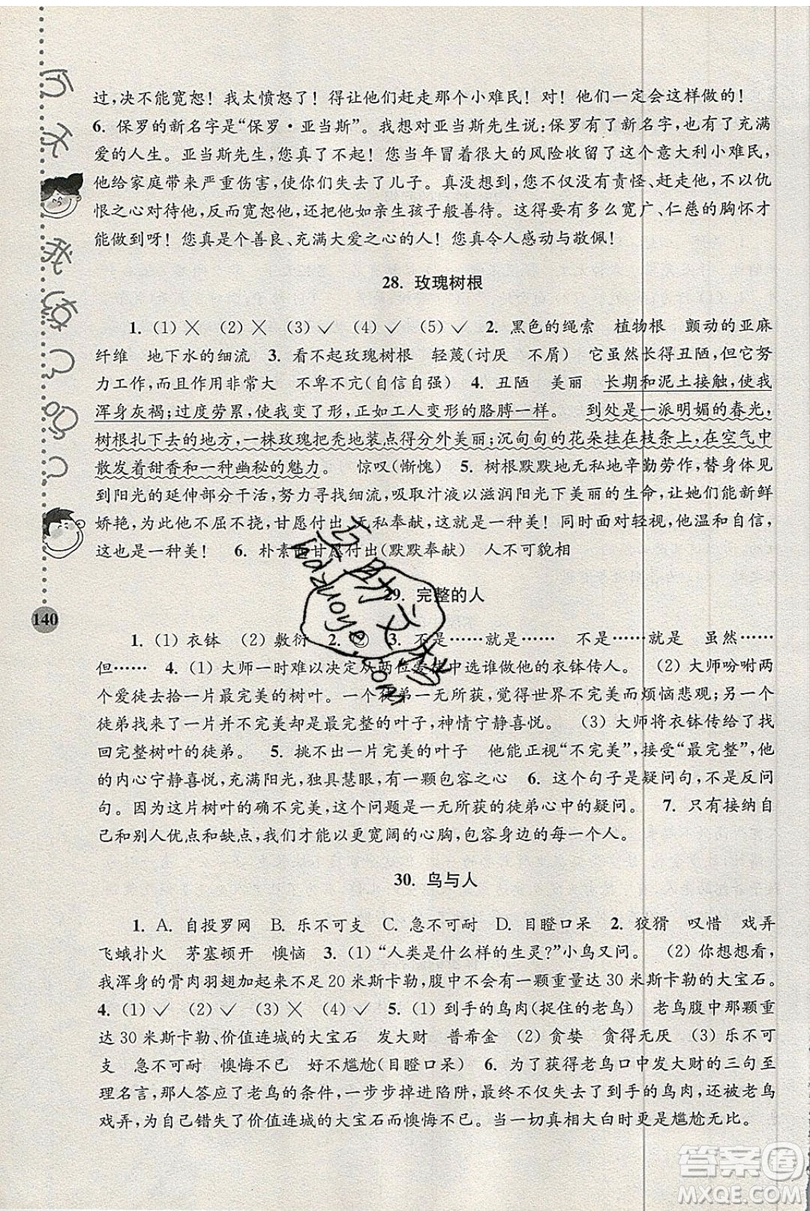 过，决不能宽恕！我太愤怒了！得让他们赶走那个小难民！对！他们一定会这样做的！
6. 保罗的新名字是“保罗·亚当斯”。我想对亚当斯先生说：保罗有了新名字，有了充满
爱的人生。亚当斯先生，您真了不起！您当年冒着很大的风险收养了这个意大利小难民，
他给家庭带来严重伤害，使你们失去了儿子。真是这样的，您不仅没有责怪、赶走他，不以仇
恨之心对待他，反而宽恕他，把他如亲生孩子般善待。这得要有多么宽广、仁慈的胸怀才
能做到呀！您真是个善良、充满大爱之心的人！您真令人感动与敬佩！
28. 玫瑰树根
1. (1) ✕ (2) ✕ (3) ✓ (4) ✓ (5) ✓ 2. 黑色的绳索 植物根 颤动的亚麻
纤维 地下水的细流 3. 看不起玫瑰树根 轻蔑(讨厌 不屑) 它虽然长得丑陋，但它努
力工作，而且作用非常大 不卑不亢(自信自强) 4. 丑陋 美丽 长期和泥土接触，使我
浑身灰褐；过度劳累，使我变了形，正如工人变形的胳膊一样。 到处是一派明媚的春光，
树根扎下去的地方，一株玫瑰把秃地装点得分外美丽；沉甸甸的花朵挂在枝条上，在空气中
散发着甜香和一种幽秘的魅力。 惊叹(惭愧) 5. 树根默默地无私地辛勤劳作，替身体见
到阳光的延伸部分干活，努力寻找细流，吸取汁液以滋润阳光下美丽的生命，让她们能新鲜
娇艳，为此他不屈不挠，甘愿付出，无私奉献，这是一种美！同时面对误会，温和而自信，
这也是一种美！ 6. 朴素而甘愿付出(默默奉献) 人不可貌相
29. 完整的人
140
1. (1) 衣钵 (2) 敷衍 2. 3. 不是……就是…… 不是……就是…… 虽然……
但…… 4. (1) 大师一时难以决定从两位爱徒中选谁做他的衣钵传人。 (2) 大师吩咐两
个爱徒去拾一片最完美的树叶。一个徒弟一无所获，觉得世界不完美而烦恼悲伤。一个
徒弟并不完美却是最完整的叶子，神情宁静喜悦。 (3) 大师将衣钵传给了找
回完整树叶的徒弟。 5. 挑不出一片完美的叶子 他能正视“不完美”，接受“最完整”，他
的内心宁静喜悦，充满阳光，独具慧眼，有一颗包容之心 6. 这个句子是疑问句，不是反问
句。因为这片树叶的确不完美，这个问题是一无所获的徒弟心中的疑问。 7. 只有接纳自
己和别人优点和缺点，我们才能以更宽阔的心胸，包容身边的每一个人。
30. 鸟与人
1. A. 自投罗网 B. 乐不可支 C. 急不可耐 D. 目瞪口呆 2. 狡猾 叹惜 戏弄
飞蛾扑火 茅塞顿开 懊恼 3. (1) “人类是什么样的生灵？”小鸟又问。 (2) 你想想看，
我浑身的骨肉羽翅加起来不足20米斯卡勒，腹中怎会有一颗重量达30米斯卡勒的大宝石。
4. (1) ✓ (2) ✓ (3) ✕ 5. (1) 到手的鸟肉(捉住的老鸟) 老鸟腹中的一颗重量
达30米斯卡勒、价值连城的大宝石 发大财 普希金 (2) 贪婪 贪得无厌 (3) 乐不可
支 急不可耐 懊悔不已 好不尴尬(目瞪口呆) 6. 为了获得老鸟口中发大财的三句至
理名言，那人答应了老鸟的条件，一步步掉进陷阱，最终不但失去了到手的小鸟，还被老鸟
戏弄，为自己错失了价值连城的大宝石而懊悔不已。当一切真相大白时更是尴尬无比。
答案圈
MXQE.COM